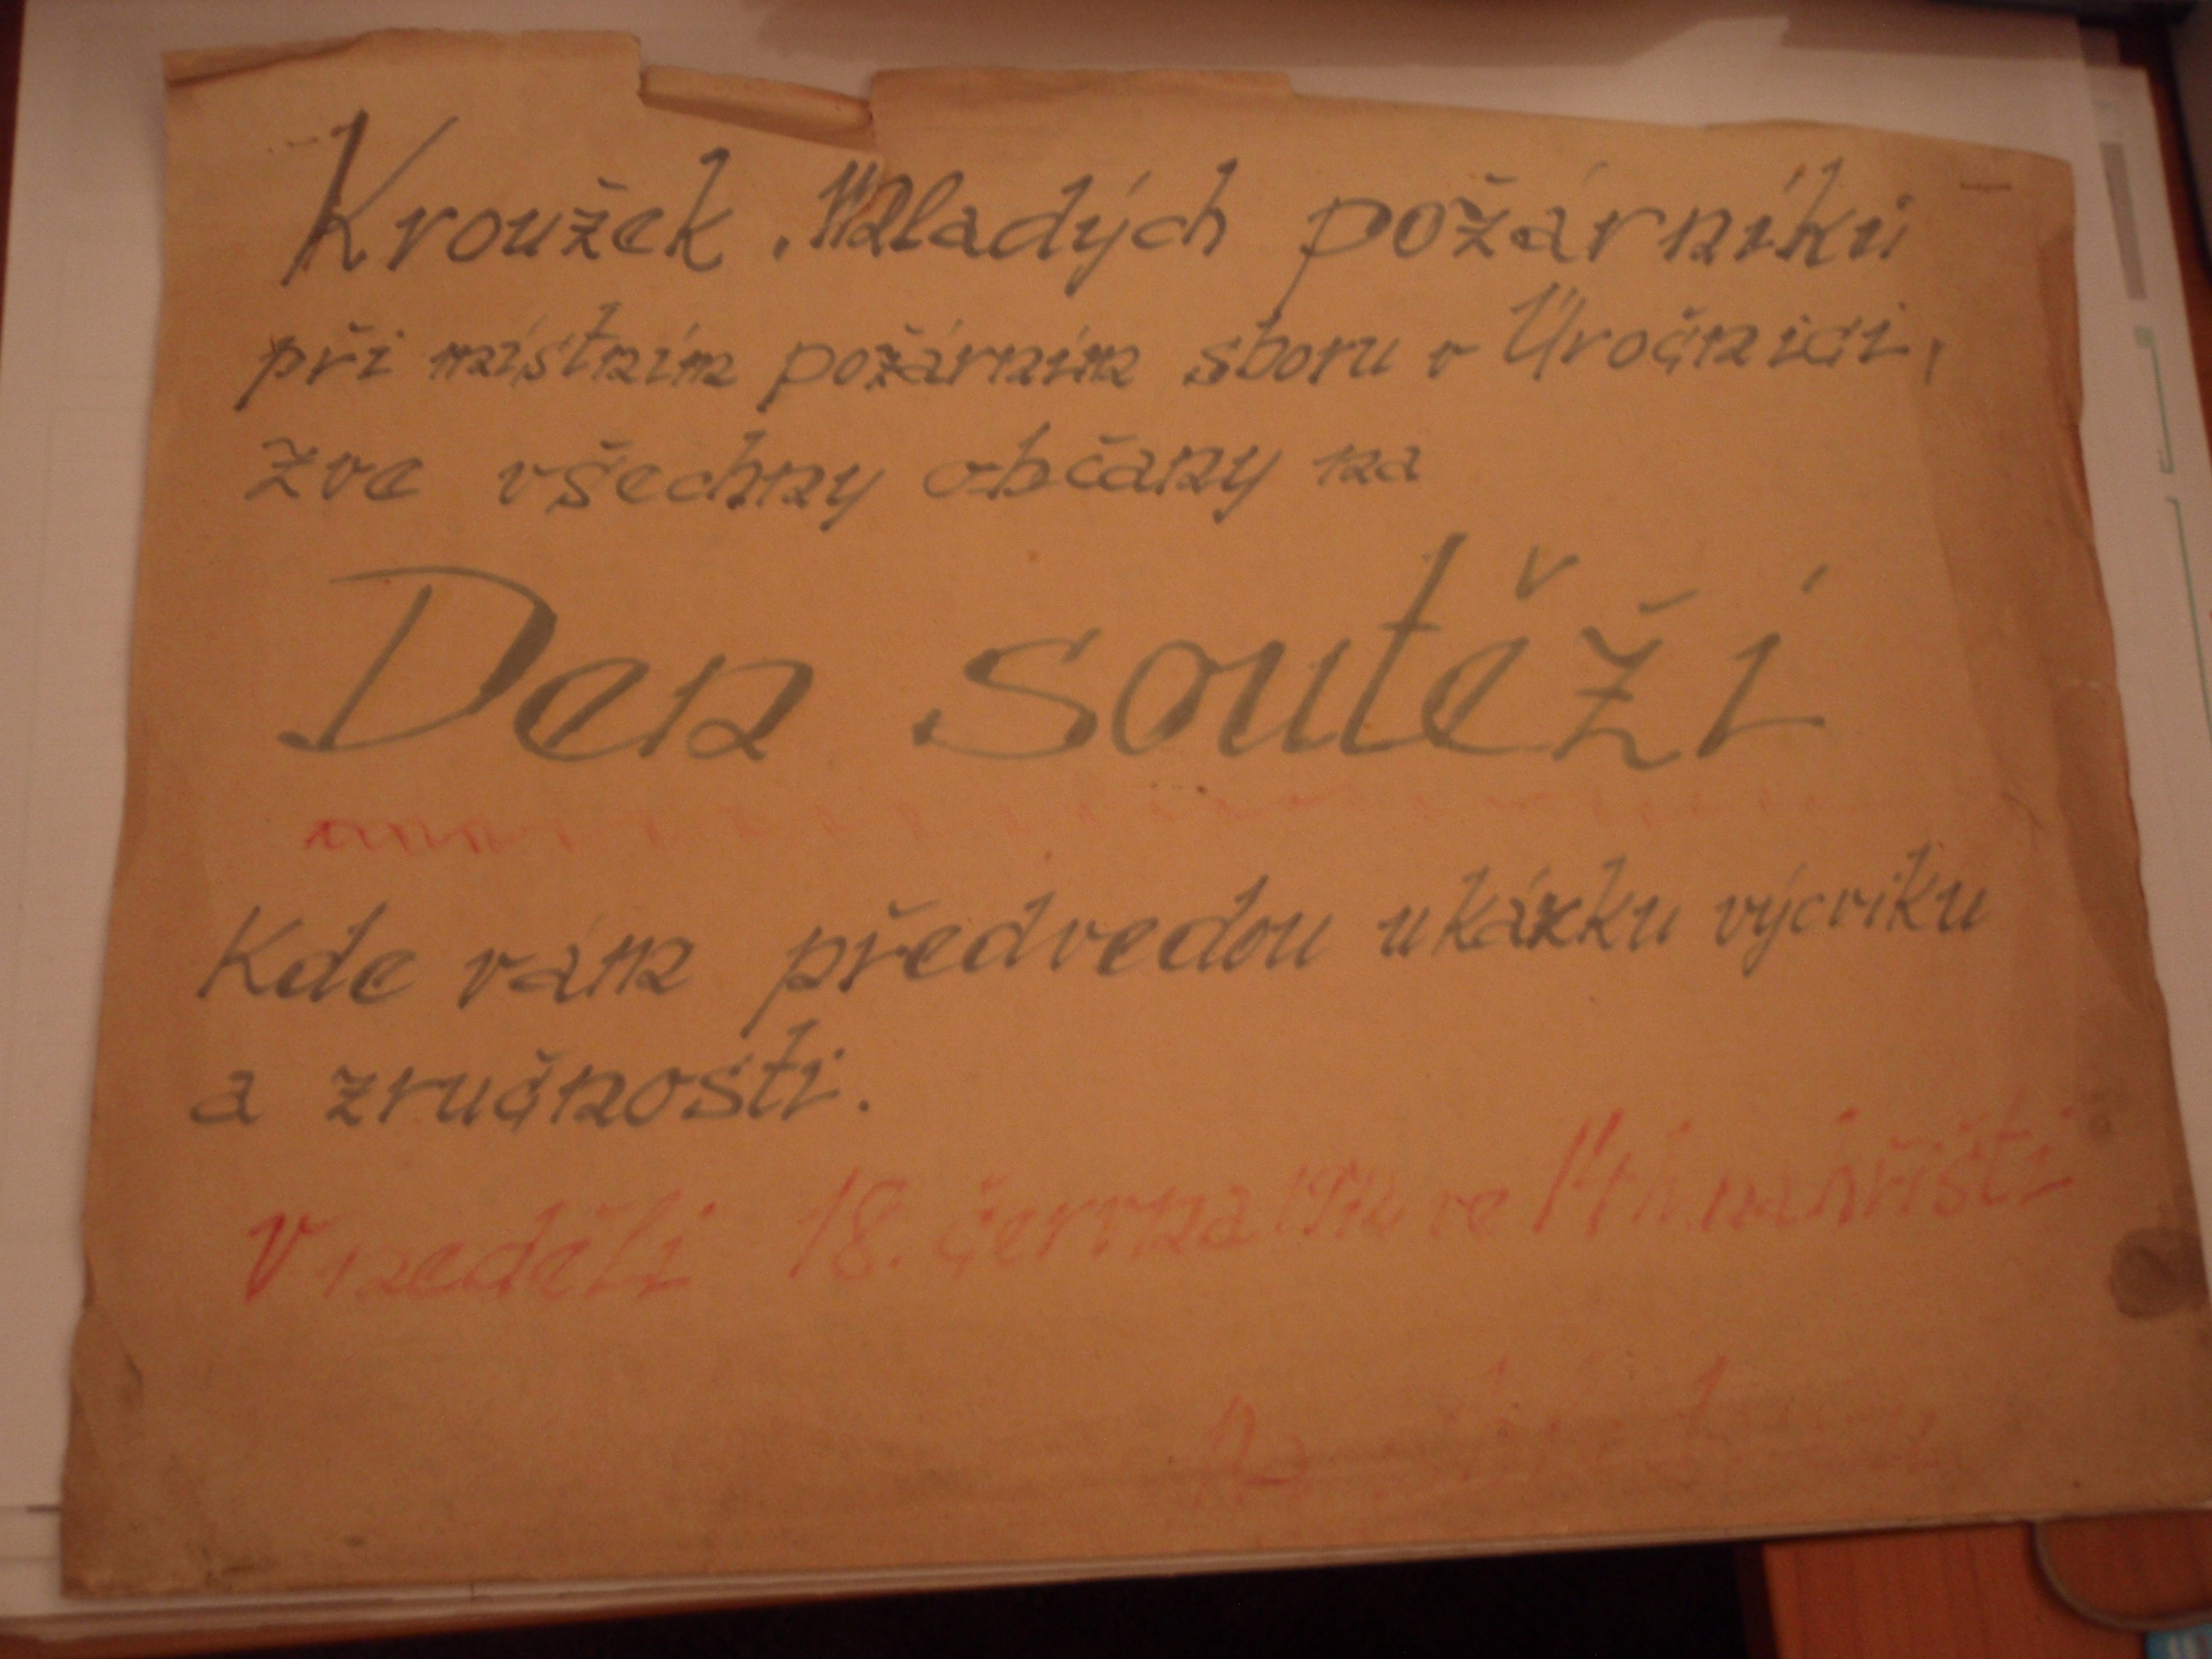 Kroužek Mladých požárníků
při místním požárním sboru v Úročnici,
zve všechny občany na
Den soutěží
Kde vám předvedou ukázku výcviku
a zručnosti.
V neděli 18. června ve 14 h. na hřišti